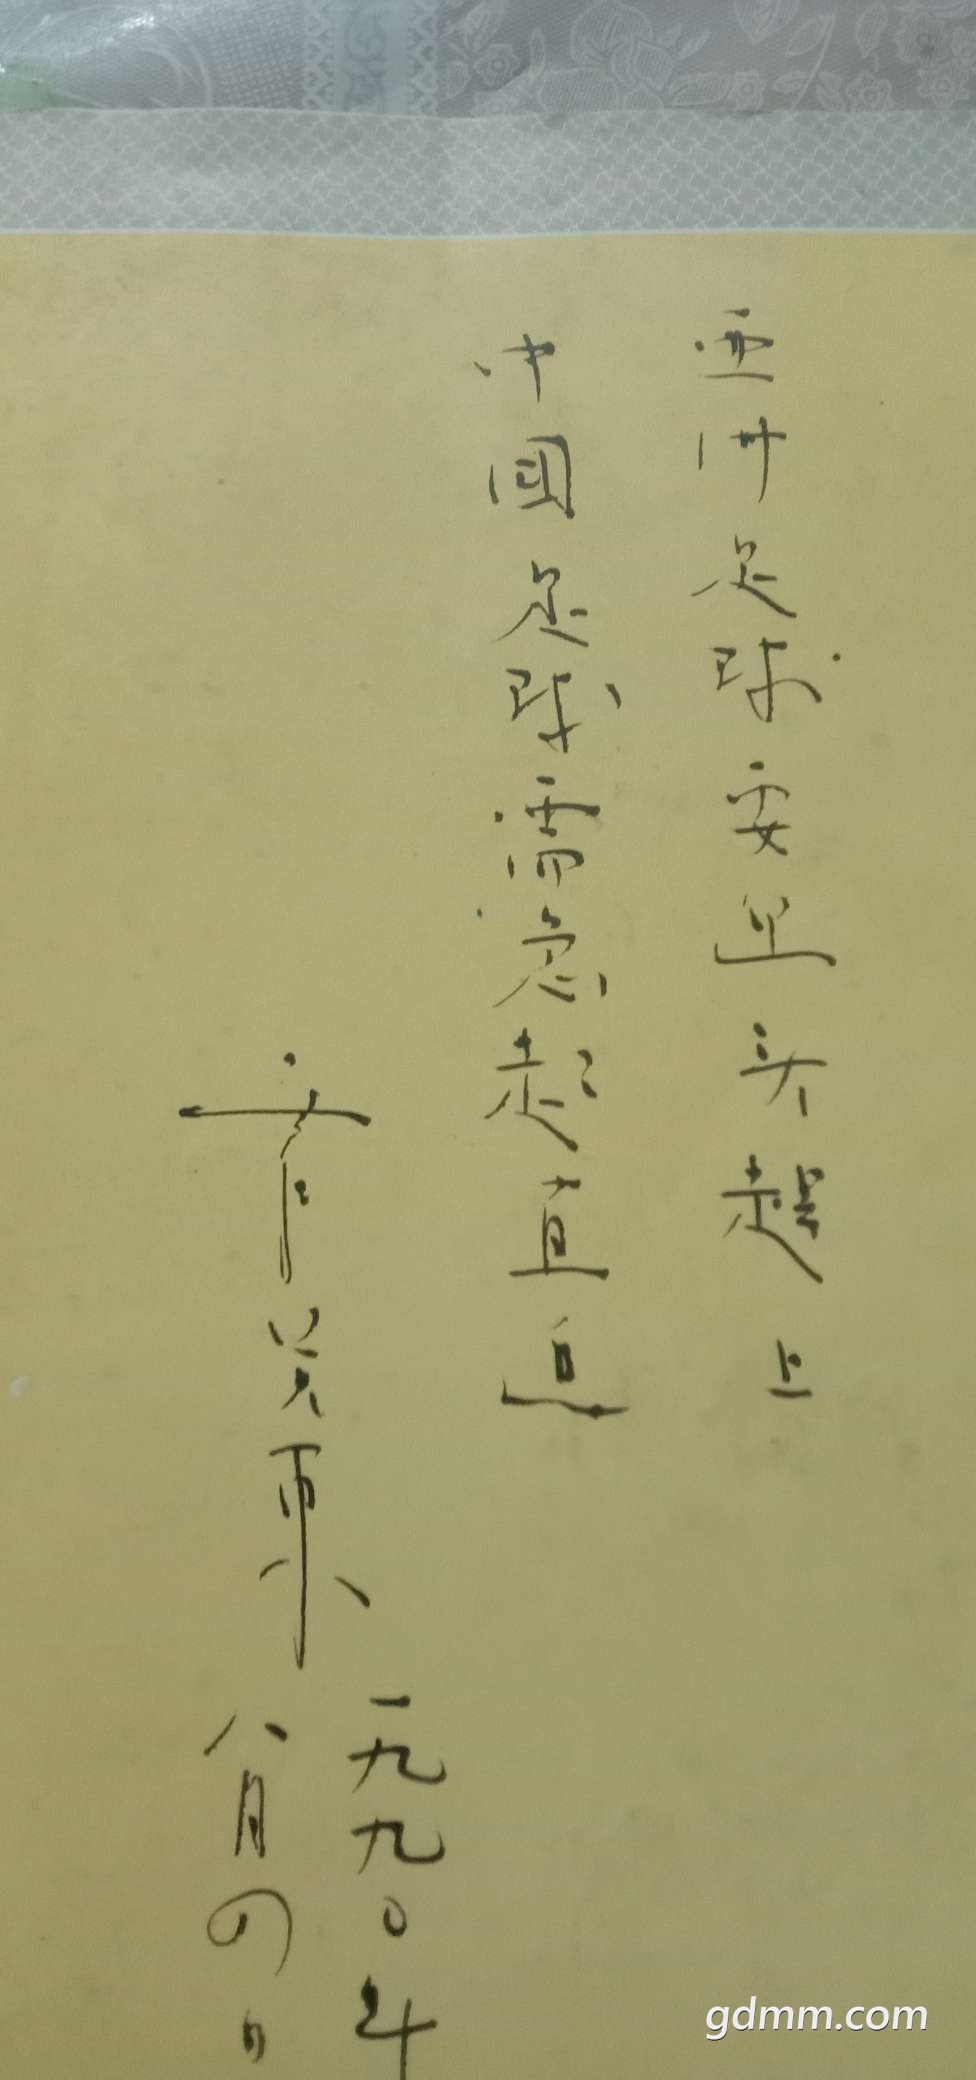 亚州足球要迎头赶上
中国足球需急起直追
一九九〇年
八月四日
gdmm.com